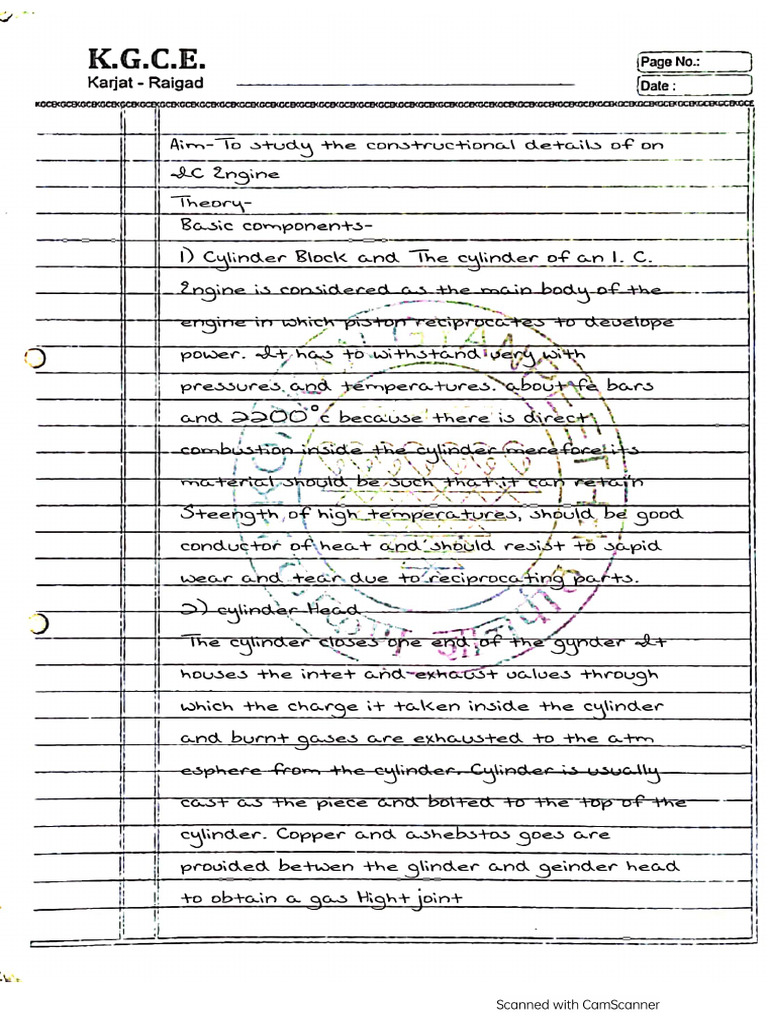 K.G.C.E.
Karjat - Raigad
Page No.:
Date :
Aim- To study the constructional details of on
IC Engine
Theory-
Basic components-
1) Cylinder Block and The cylinder of an I. C.
Engine is considered as the main body of the
engine in which piston reciprocates to develope
power. It has to withstand very with
pressures and temperatures. about fe bars
and 2200°c because there is direct
combustion inside the cylinder merefore its
material should be such that it can retain
Steength of high temperatures, should be good
conductor of heat and should resist to sapid
wear and tear due to reciprocating parts.
2) cylinder Head
The cylinder closes one end of the gynder It
houses the intet and exhaust values through
which the charge it taken inside the cylinder
and burnt gases are exhausted to the atm
esphere from the cylinder. Cylinder is usually
cast as the piece and bolted to the top of the
cylinder. Copper and ashebstos goes are
provided betwen the glinder and geinder head
to obtain a gas Hight joint
Scanned with CamScanner